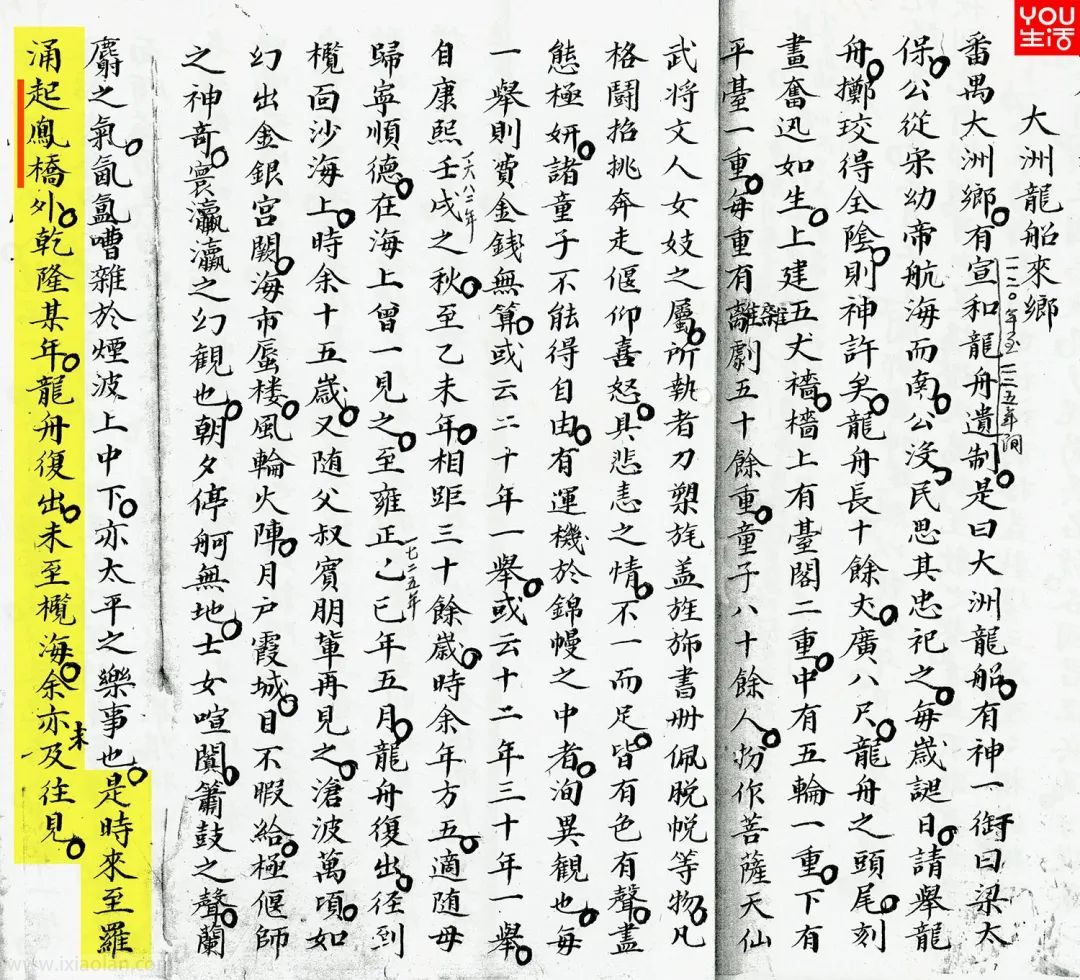 大洲龍船來鄉
番禺大洲鄉有宣和龍舟遺制是曰大洲龍船有神一衘曰梁太
一一二〇年至一一二五年間
保公從宋幼帝航海而南公沒民思其忠祀之每歲誕日請舉龍
舟擲珓得全陰則神許矣龍舟長十餘丈廣八尺龍舟之頭尾刻
畫奮迅如生上建五丈檣檣上有臺閣二重中有五輪一重下有
平臺一重每重有離劇五十餘重童子八十餘人扮作菩薩天仙
雜
武将文人女妓之屬所執者刀槊旄盖旌斾書册佩脫帨等物凡
格鬪招挑奔走偃仰喜怒具悲恚之情不一而足皆有色有聲盡
態極妍諸童子不能得自由有運機於錦幔之中者洵異觀也每
一舉則費金錢無算或云二十年一舉或云十二年三十年一舉
自康熙壬戍之秋至乙未年相距三十餘歲時余年方五適随母
一六八二年
歸寧順德在海上曾一見之至雍正乙巳年五月龍舟復出径到
一七二五年
欖面沙海上時余十五歲又随父叔賓朋輩再見之滄波萬頃如
幻出金銀宮闕海市蜃楼風輪火陣月户霞城目不暇給極偃師
之神竒寰瀛瀛之幻觀也朝夕停舸無地士女喧闐簫鼓之聲蘭
麝之氣氤氳嘈雜於煙波上中下亦太平之樂事也是時來至羅
涌起鳳橋外乾隆某年龍舟復出未至欖海余亦及往見
未
YOU
生活
www.ixiaolan.com